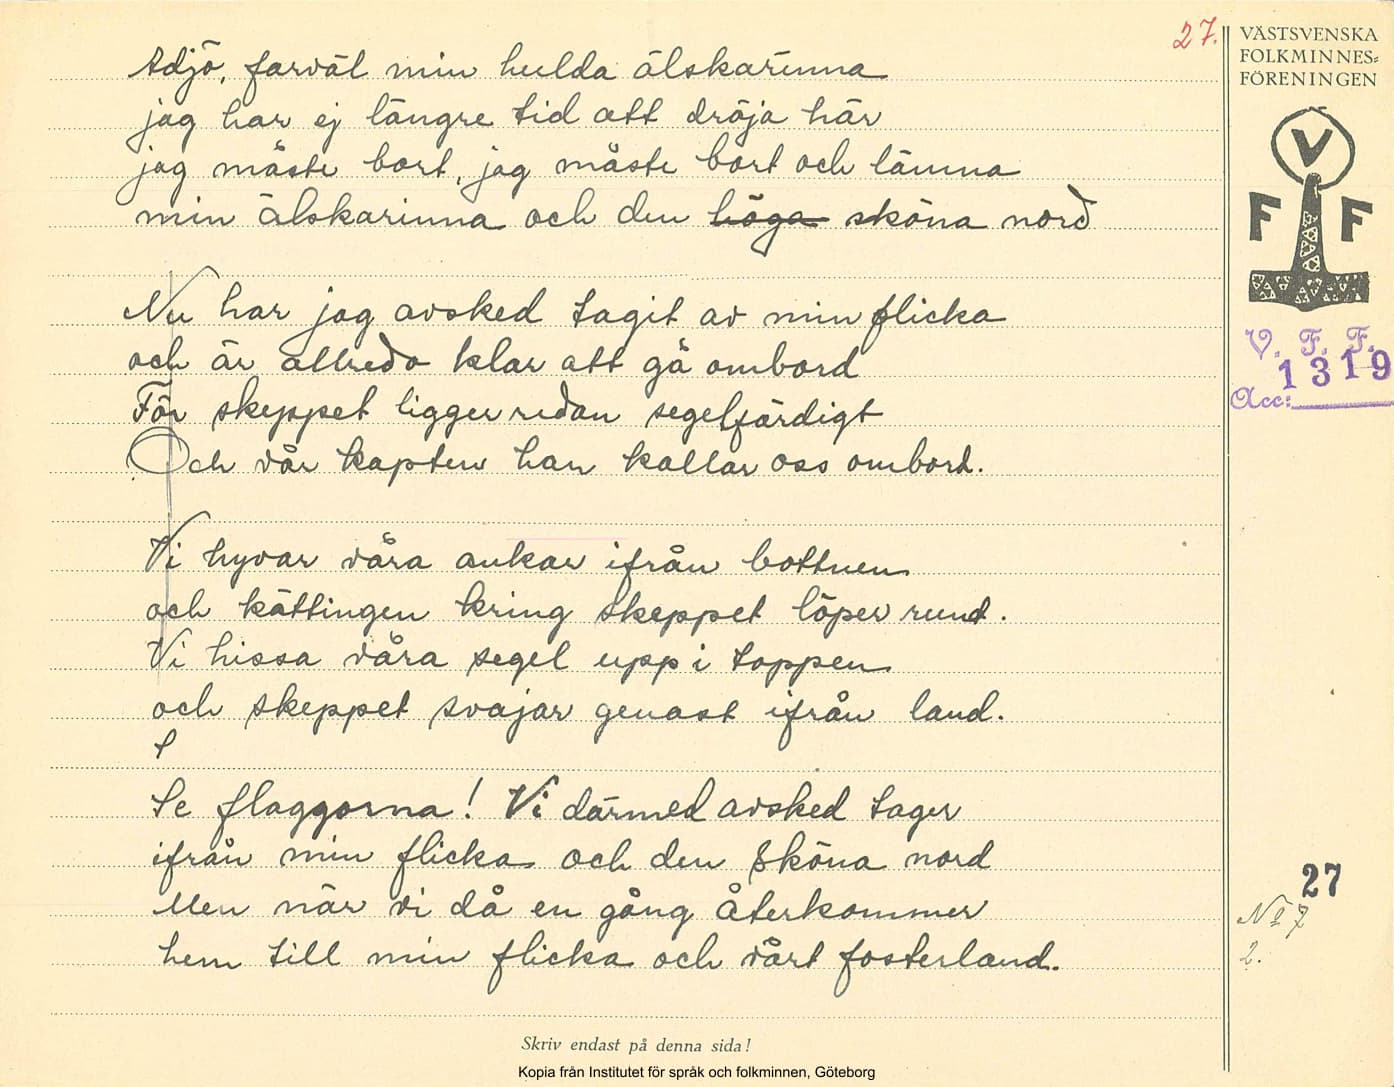 27.
VÄSTSVENSKA
FOLKMINNES-
FÖRENINGEN
V
F F
V. F. F.
1319
Acc:
Adjö, farväl min hulda älskarinna
jag har ej längre tid att dröja här
jag måste bort, jag måste bort och lämna
min älskarinna och den höga sköna nord
Nu har jag avsked tagit av min flicka
och är allredo klar att gå ombord
För skeppet ligger redan segelfärdigt
Och vår kapten han kallar oss ombord.
Vi hyvar våra ankar ifrån bottnen
och kättingen kring skeppet löper rund.
Vi hissa våra segel upp i toppen
och skeppet svajar genast ifrån land.
S
Se flaggorna! Vi därmed avsked tager
ifrån min flicka och den sköna nord
Men när vi då en gång återkommer
hem till min flicka och vårt fosterland.
27
No 7
2.
Skriv endast på denna sida!
Kopia från Institutet för språk och folkminnen, Göteborg